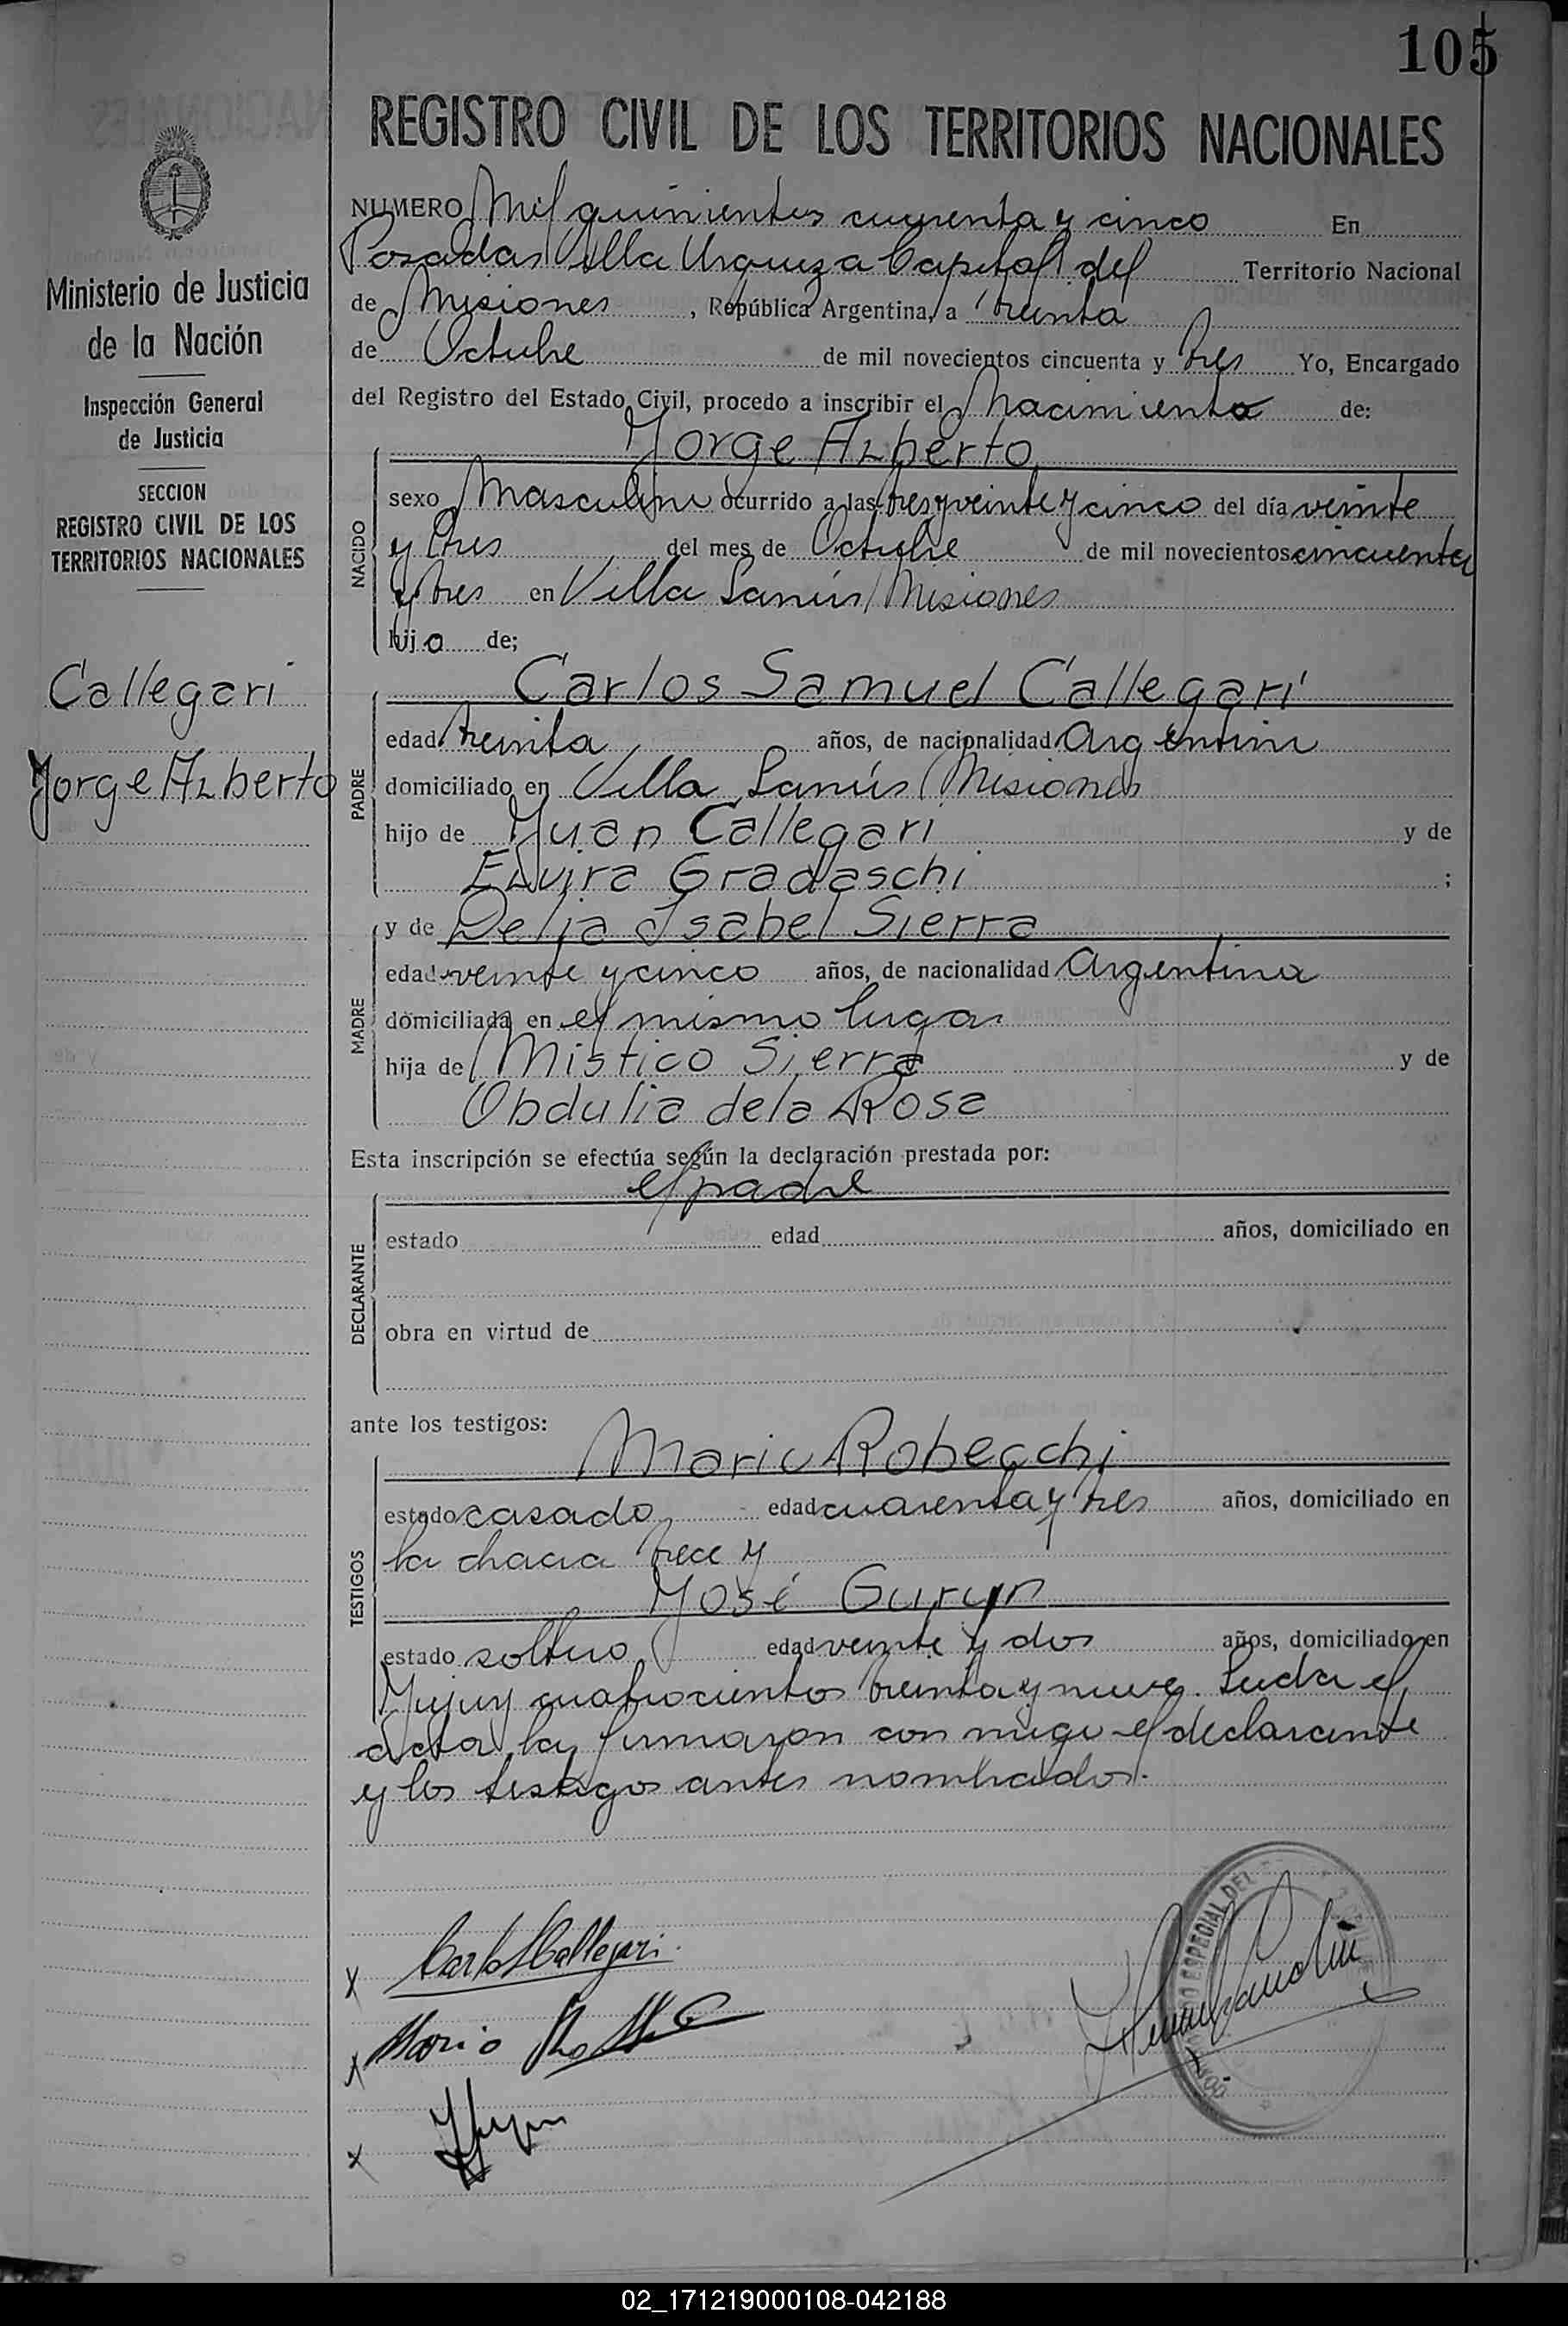 105
REGISTRO CIVIL DE LOS TERRITORIOS NACIONALES
Ministerio de Justicia
de la Nación
Inspección General
de Justicia
SECCION
REGISTRO CIVIL DE LOS
TERRITORIOS NACIONALES
Callegari
Jorge Alberto
NUMERO Mil quinientos cuarenta y cinco En
Posadas Villa Urquiza Capital del Territorio Nacional
de Misiones, República Argentina, a treinta
de Octubre de mil novecientos cincuenta y tres Yo, Encargado
del Registro del Estado Civil, procedo a inscribir el Nacimiento de:
Jorge Alberto
NACIDO
sexo Masculino ocurrido a las tres y veinte y cinco del día veinte
y tres del mes de Octubre de mil novecientos cincuenta
y tres en Villa Lanús Misiones
hijo de;
Carlos Samuel Callegari
PADRE
edad treinta años, de nacionalidad Argentino
domiciliado en Villa Lanús Misiones
hijo de Juan Callegari y de
Elvira Gradaschi ;
MADRE
y de Delia Isabel Sierra
edad veinte y cinco años, de nacionalidad Argentina
domiciliada en el mismo lugar
hija de Mistico Sierra y de
Obdulia de la Rosa
Esta inscripción se efectúa según la declaración prestada por:
el padre
DECLARANTE
estado edad años, domiciliado en
obra en virtud de
ante los testigos:
Mario Robecchi
TESTIGOS
estado casado edad cuarenta y tres años, domiciliado en
la chacra trece y
José Guryn
estado soltero edad veinte y dos años, domiciliado en
Jujuy cuatrocientos treinta y nueve. Leída el
acta la firmaron con migo el declarante
y los testigos antes nombrados.
x Carlos Callegari.
x Mario
x
ESPECIAL DEL
02_171219000108-042188